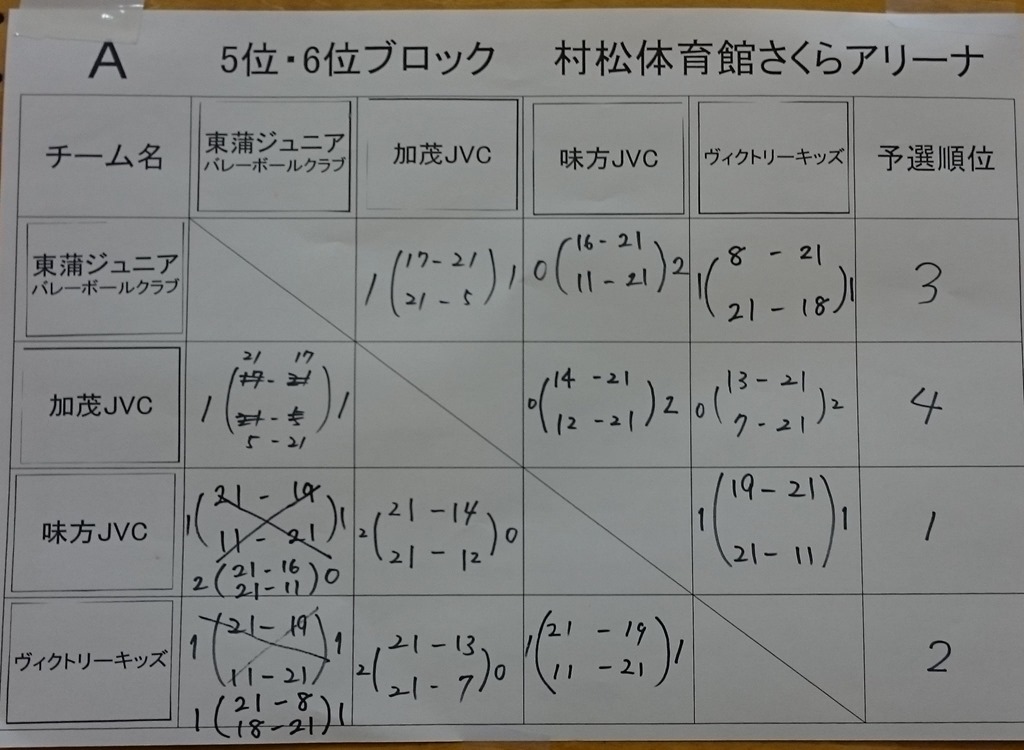 A 5位・6位ブロック 村松体育館さくらアリーナ
チーム名 東蒲ジュニア 加茂JVC 味方JVC ヴィクトリーキッズ 予選順位
バレーボールクラブ
東蒲ジュニア
バレーボールクラブ
1 (17-21 21-5) 1
0 (16-21 11-21) 2
1 (8-21 21-18) 1
3
加茂JVC
21 17
17-21
1 ( ) 1
21-5
5-21
0 (14-21 12-21) 2
0 (13-21 7-21) 2
4
味方JVC
1 (21-19 11-21) 1
2 (21-16 21-11) 0
2 (21-14 21-12) 0
1 (19-21 21-11) 1
1
ヴィクトリーキッズ
1 (21-19 11-21) 1
1 (21-8 18-21) 1
2 (21-13 21-7) 0
1 (21-19 11-21) 1
2